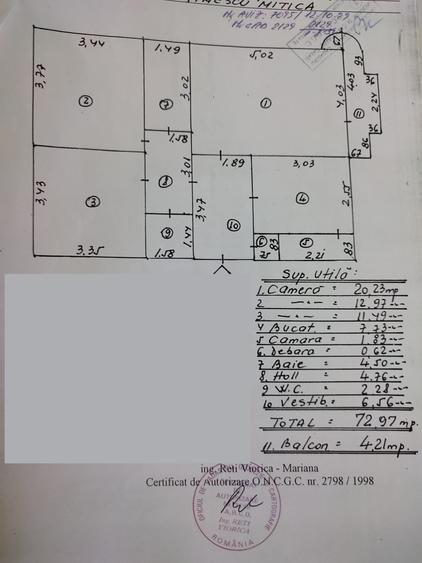 MITICA
3,44
1.49
5,02
67
93
3,77
3,02
4,03
4,03
36
2,24
2
7
1
11
36
86
67
1.58
1.89
3,03
3,01
3,43
3
8
3,47
4
2,55
9
1.44
10
6
83
5
83
3.35
1.58
75
2,21
Sup. utilă:
1. Cameră = 20,23 mp
2 —"— = 12,97 —"—
3 —"— = 11,49 —"—
4 Bucat. = 7,73 —"—
5 Cămara = 1.83 —"—
6. Debara = 0,62 —"—
7 Baie = 4,50 —"—
8. Holl = 4,76 —"—
9 W.C. = 2,28 —"—
10 Vestib = 6,56 —"—
TOTAL = 72,97 mp.
11. Balcon = 4,21 mp.
ing. Reti Viorica - Mariana
Certificat de Autorizare O.N.C.G.C. nr. 2798 / 1998
Ing. RETI
VIORICA
ROMÂNIA